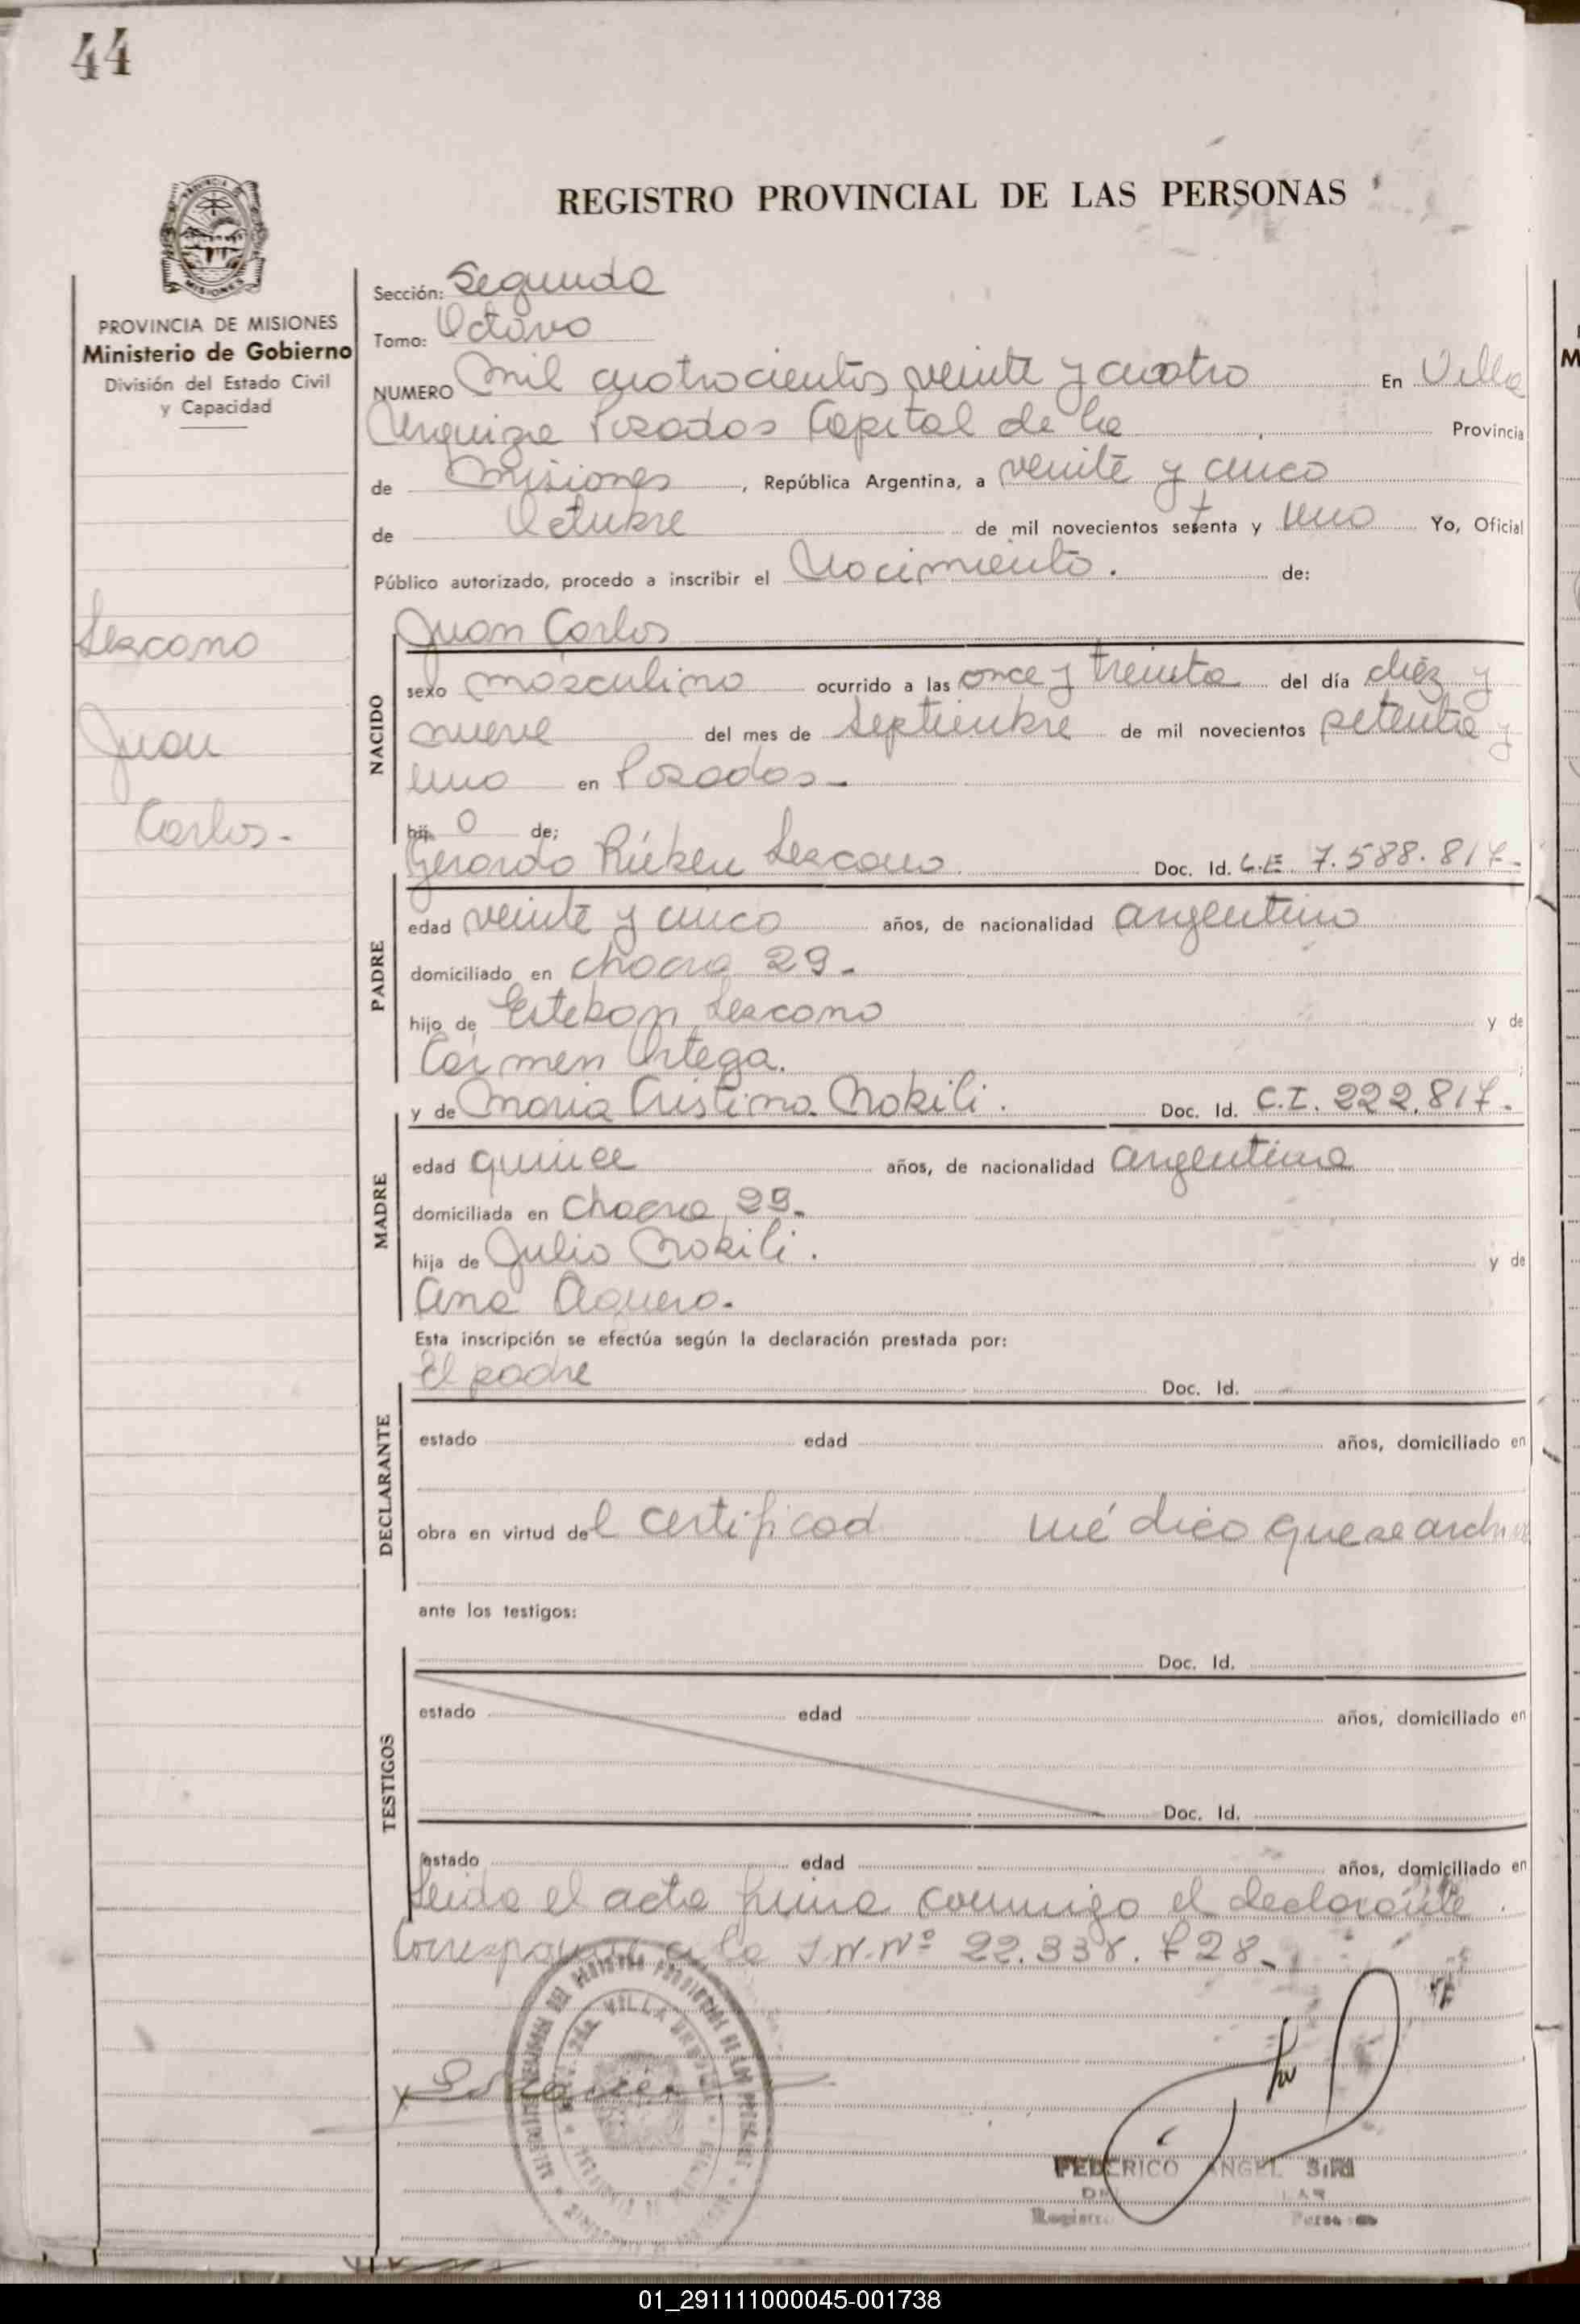 44
REGISTRO PROVINCIAL DE LAS PERSONAS
PROVINCIA DE MISIONES
Ministerio de Gobierno
División del Estado Civil
y Capacidad
Lezcano
Juan
Carlos.-
Sección: Segunda
Tomo: Octavo
NUMERO Mil cuatrocientos veinte y cuatro En Villa
Urquiza Posadas Capital de la Provincia
de Misiones, República Argentina, a veinte y cinco
de Octubre de mil novecientos setenta y uno Yo, Oficial
Público autorizado, procedo a inscribir el Nacimiento. de:
NACIDO
Juan Carlos
sexo masculino ocurrido a las once y treinta del día diéz y
nueve del mes de Septiembre de mil novecientos setenta y
uno en Posadas.-
hij o de;
Gerardo Rúben Lezcano Doc. Id. L.E 7.588.817.-
PADRE
edad veinte y cinco años, de nacionalidad argentino
domiciliado en chacra 29.-
hijo de Esteban Lezcano y de
Carmen Ortega.
y de Maria Cristina Nokili. Doc. Id. C.I. 222.817.-
MADRE
edad quince años, de nacionalidad argentina
domiciliada en Chacra 29.-
hija de Julio Nokili. y de
Ana Aguero.-
Esta inscripción se efectúa según la declaración prestada por:
El padre Doc. Id.
DECLARANTE
estado edad años, domiciliado en
obra en virtud del certificad médico que se archiva
ante los testigos:
TESTIGOS
Doc. Id.
estado edad años, domiciliado en
Doc. Id.
estado edad años, domiciliado en
Leida el acta firma conmigo el declarante.
Corresponde a la I.N.Nº 22.338.728.-
VILLA URQUIZA
FEDERICO ANGEL
01_291111000045-001738